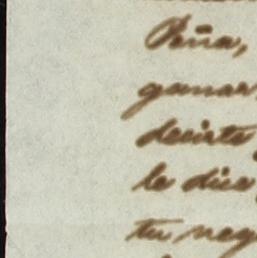 Peña,
ganar
decirte
le dice
tu neg